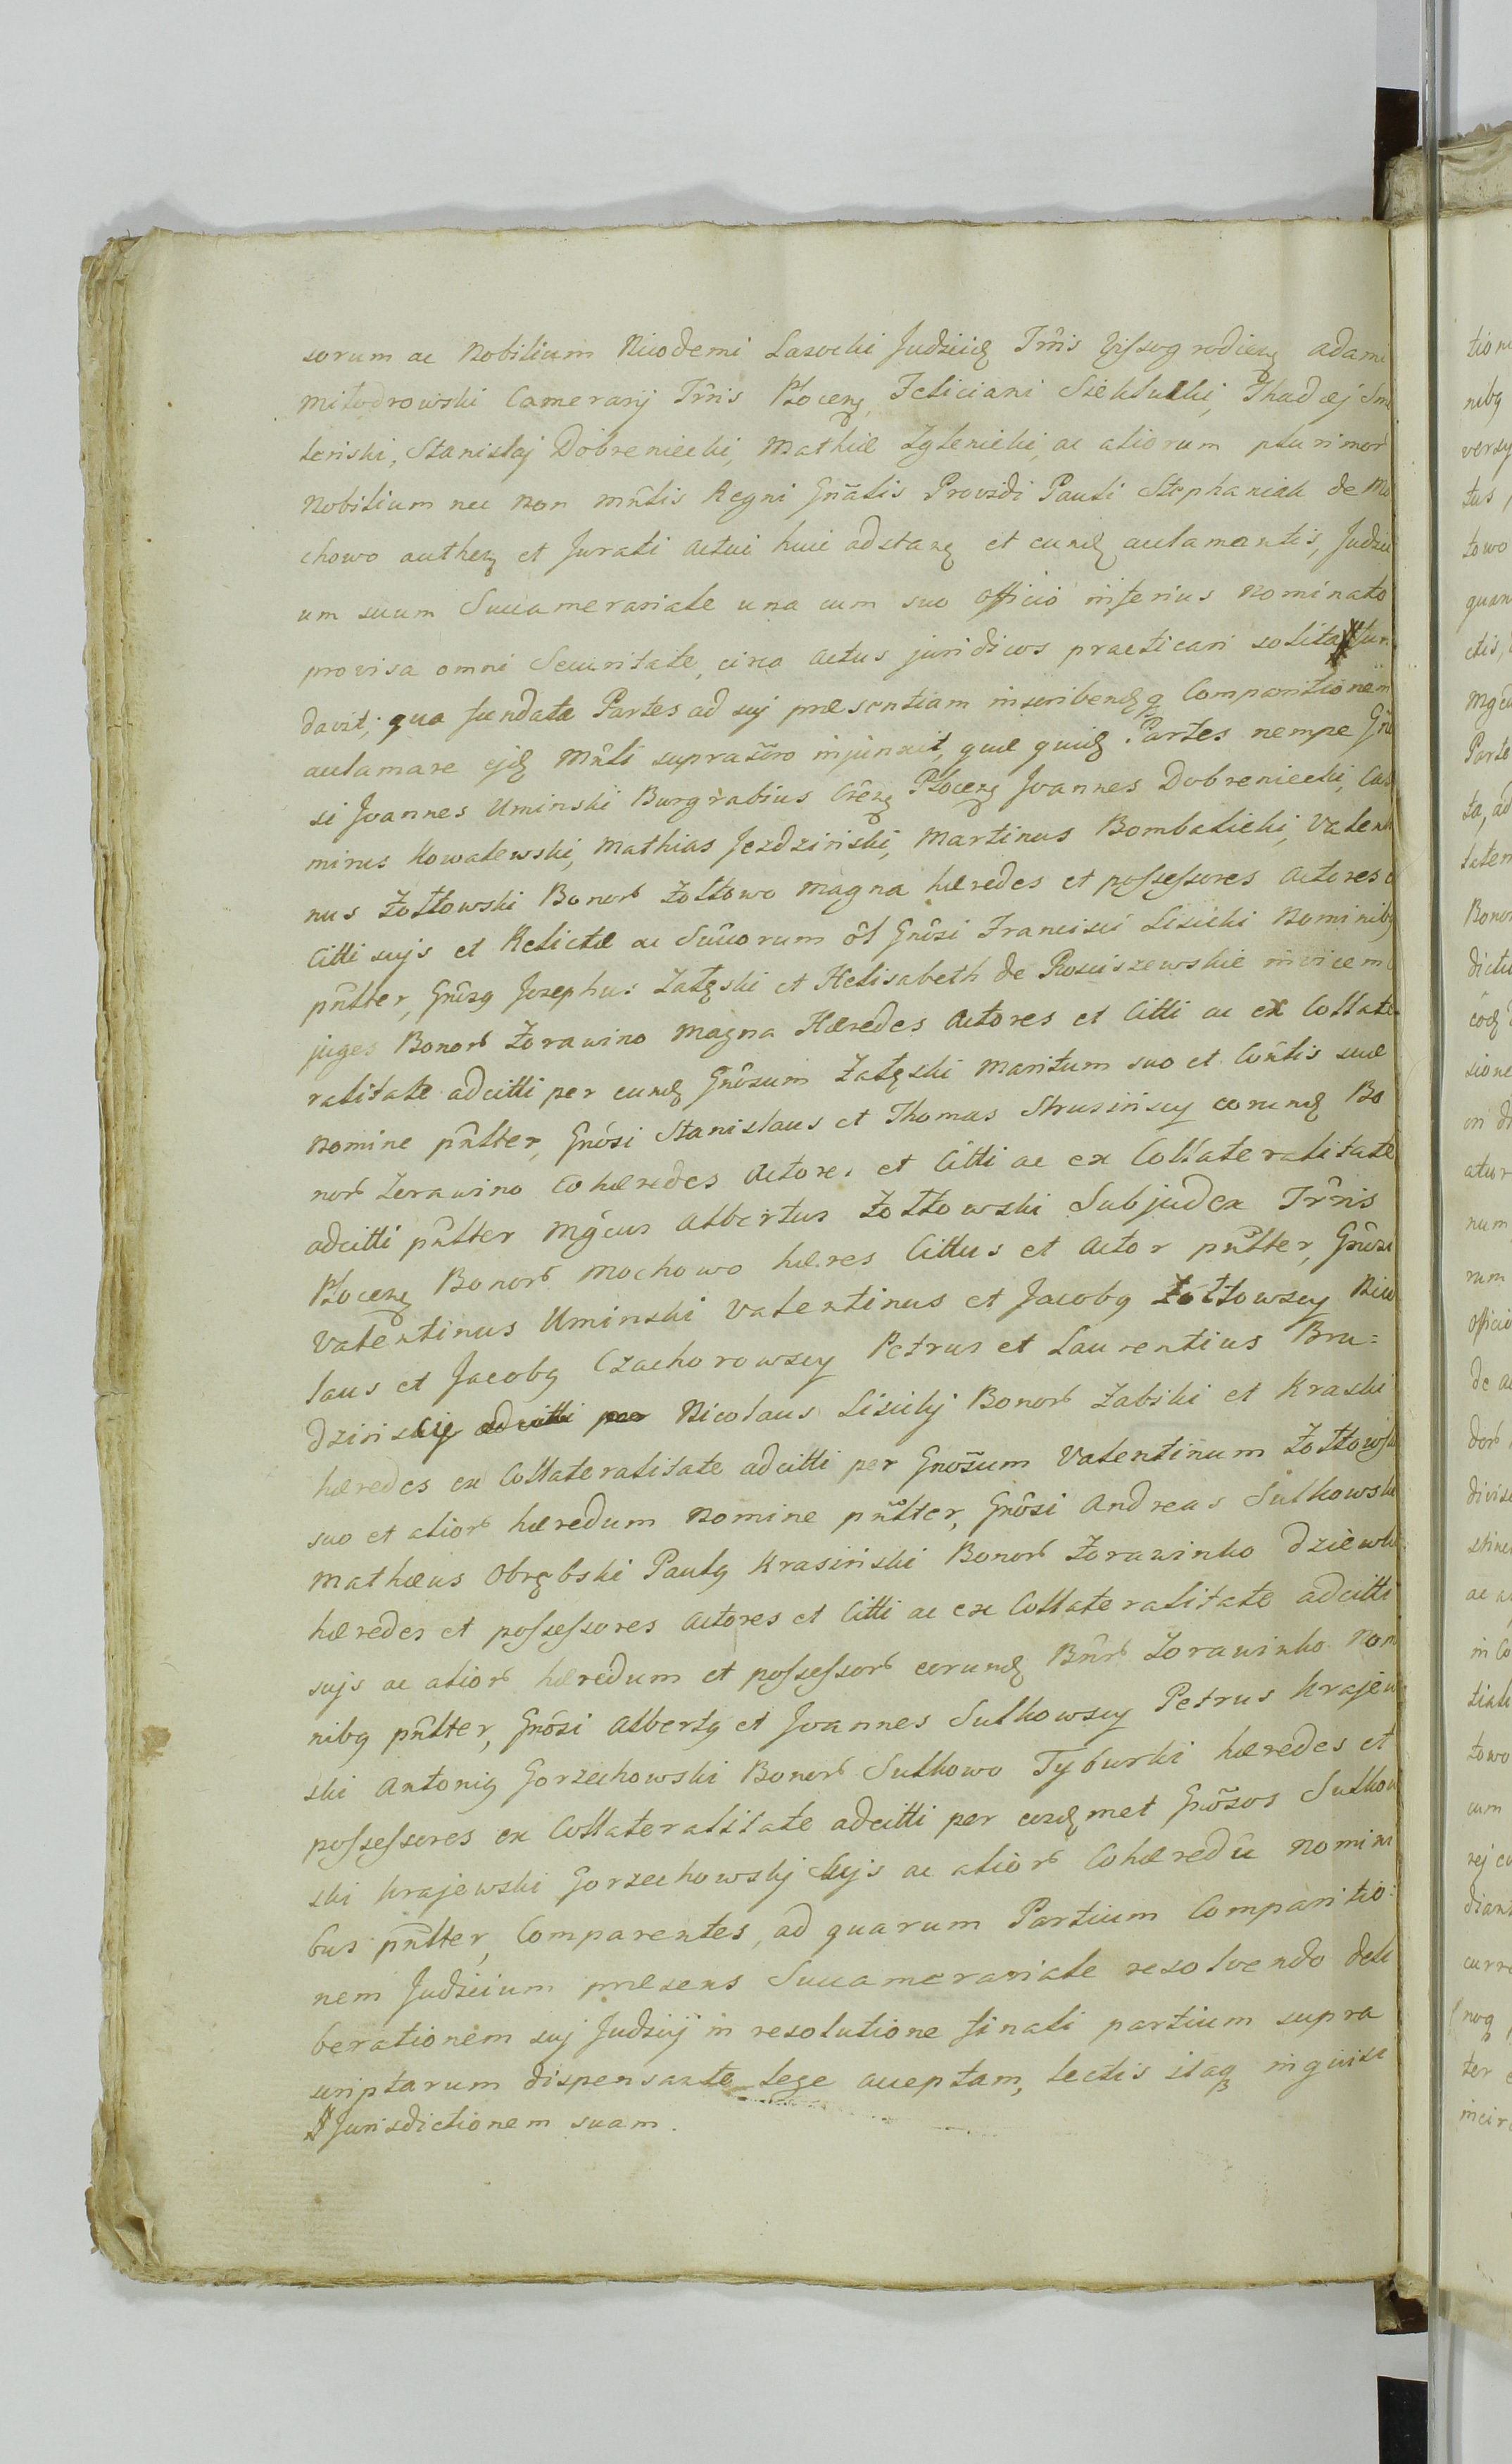 sorum ac Nobilium Nicodemi Lasocki Judicis Trris Vissogrodien Adami
Miłodrowski Camerarij Trris Plocen, Feliciani Siekłucki, Thadæj
lenski, Stanislaj Dobreniecki, Mathiæ Zglenicki, ac aliorum plurimor
Nobilium nec non Mnlis Regni Gnãlis Providi Pauli Stephaniak de Mo
chowo authen et Jurati actui huic adstan et eund acclamantis, Judici
um suum Succamerariale una cum suo officio inferius nominato
provisa omni Securitate, circa actus juridicos practicari solita # fun
davit; qua fundata Partes ad suj præsentiam inscribendq Comparitionem
acclamare ejd Mnli suprascro injunxit, quæ quid Partes nempe Gñro
si Joannes Uminski Burgrabius Cren Plocen Joannes Dobreniecki, Cas
mirus Kowalewski, Mathias Jezdzinski, Martinus Bombalicki, Valenti
nus Żołtowski Bonor Żołtowo magna hæredes et possessores Actores
Citti sujs et Relictæ ac Succorum ol Gnrosi Francisci Lisicki Nominibq
pñlter, Gnrosq Josephus Załęski et Helisabeth de Rosciszewskie invicem
juges Bonor Żorawino Magna Hæredes Actores et Citti ac ex Collate
ralitate adcitti per eund Gnrosum Załęski Maritum suo et Contis suæ
Nomine pñlter, Gnrosi Stanislaus et Thomas Strusinscy eorund Bo
nor Żorawino Cohæredes Actores et Citti ac ex Collateralitate
adcitti pñlter Mgcus Albertus Żołtowski Subjudex Trris
Plocen Bonor Mochowo hæres Cittus et Actor pñlter, Gnrosi
Valentinus Uminski Valentinus et Jacobq Żołtowscy Nico
laus et Jacobq Czachorowscy Petrus et Laurentius Bru=
dzinscy Nicolaus Lisickj Bonor Żabiki et Kraski
hæredes ex Collateralitate adcitti per Gnrosum Valentinum Żołtowski
suo et alior hæredum Nomine pñlter, Gnrosi Andreas Sulkowski
Mathæus Obrębski Paulq Krasinski Bonor Żorawinko Dziewki
hæredes et possessores Actores et Citti ac ex Collateralitate adcitti
sujs ac alior hæredum et possessor eorund Bnr Żorawinko Nomi
nibq pñlter, Gnrosi Albertq et Joannes Sulkowscy Petrus Krajew
ski Antoniq Gorzechowski Bonor Sulkowo Tyburki hæredes et
possessores ex Collateralitate adcitti per eosdmet Gnrosos Sulkow
ski Krajewski Gorzechowskj Sujs ac alior Cohæredũ Nomini
bus pñlter, Comparentes, ad quarum Partium Comparitio=
nem Judicium præsens Succamerariale resolvendo deli
berationem suj Judicij in resolutione finali partium supra
scriptarum dispensante lege acceptam, lectis itaq inquisi
# Jurisdictionem suam.